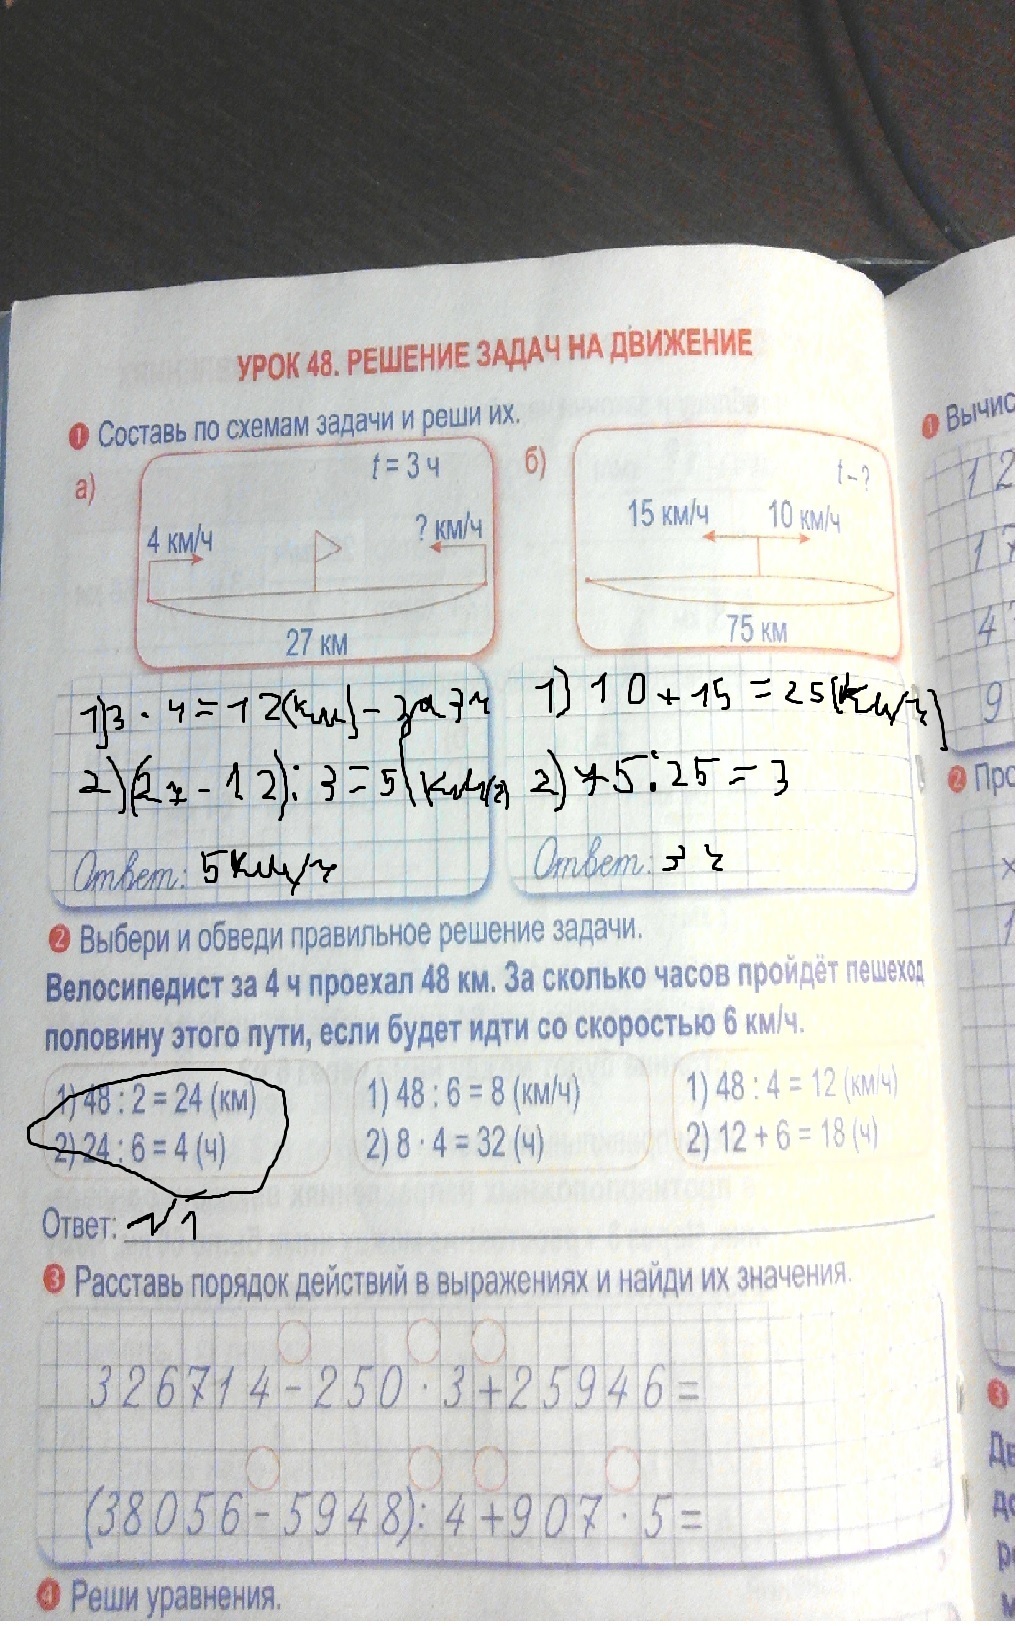 УРОК 48. РЕШЕНИЕ ЗАДАЧ НА ДВИЖЕНИЕ
1 Составь по схемам задачи и реши их.
а)
t = 3 ч
4 км/ч
? км/ч
27 км
б)
t - ?
15 км/ч
10 км/ч
75 км
1) 3 · 4 = 12 (км) - за 3 ч
2) (27 - 12) : 3 = 5 (км/ч)
Ответ: 5 км/ч
1) 10 + 15 = 25 (км/ч)
2) 75 : 25 = 3
Ответ: 3 ч
2 Выбери и обведи правильное решение задачи.
Велосипедист за 4 ч проехал 48 км. За сколько часов пройдёт пешеход
половину этого пути, если будет идти со скоростью 6 км/ч.
1) 48 : 2 = 24 (км)
2) 24 : 6 = 4 (ч)
1) 48 : 6 = 8 (км/ч)
2) 8 · 4 = 32 (ч)
1) 48 : 4 = 12 (км/ч)
2) 12 + 6 = 18 (ч)
Ответ: √1
3 Расставь порядок действий в выражениях и найди их значения.
326714 - 250 · 3 + 25946 =
(38056 - 5948) : 4 + 907 · 5 =
4 Реши уравнения.
1 Вычис
12
17
4
9
2 Про
х
1
3
Дв
до